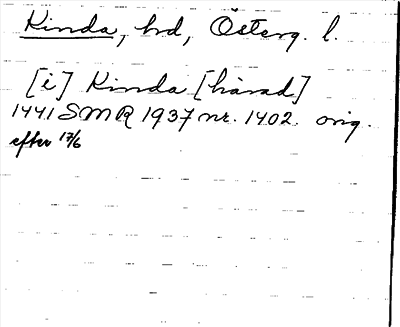 Kinda, hrd, Österg. l.
[i] Kinda [härad]
1441 SMR 1937 nr. 1402. orig.
efter 17/6